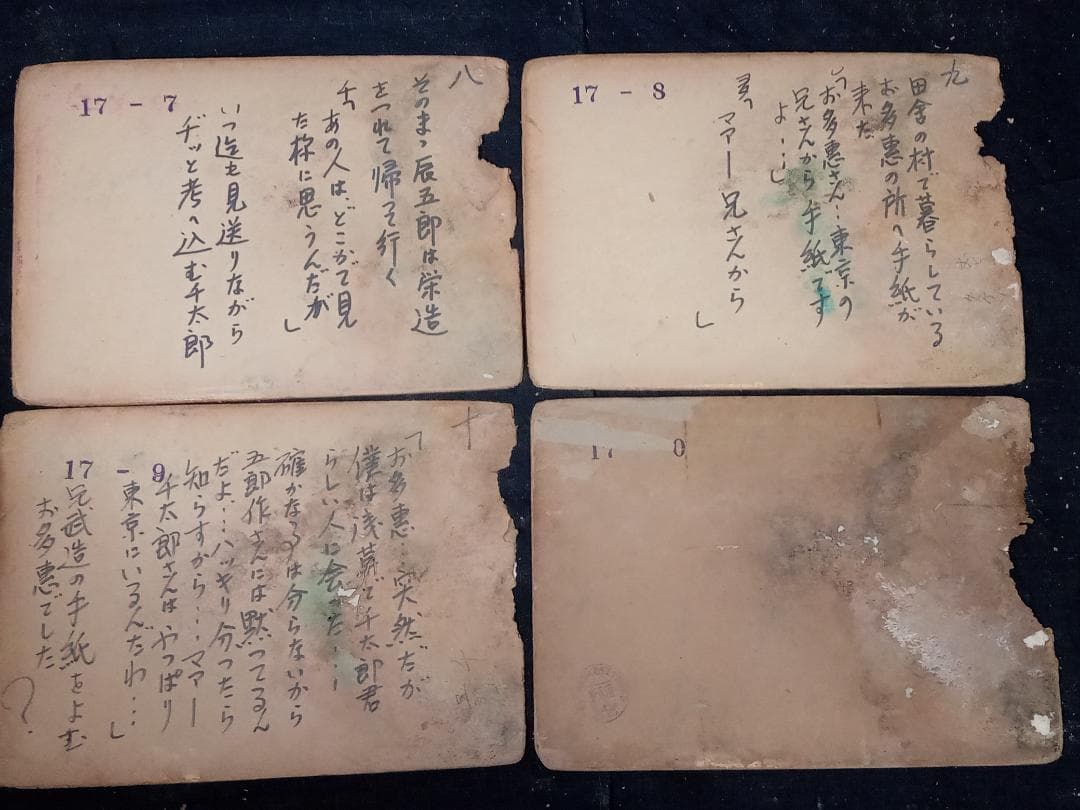 17 - 7
八
そのまゝ辰五郎は栄造
をつれて帰って行く
千「あの人は、どこかで見
た様に思うんだが
」
いつ迄も見送りながら
ヂッと考へ込む千太郎
17 - 8
九
田舎の村で暮らしている
お多恵の所へ手紙が
来た
「お多恵さん…東京の
兄さんから手紙です
よ…」
マアー兄さんから
」
17 - 9
十
「お多恵…突然だが
僕は浅草で千太郎君
らしい人に会った…
確かなるは分らないから
五郎作さんには黙ってるん
だよ…ハッキリ分ったら
知らすから…マアー
千太郎さんはやっぱり
東京にいるんだわ…」
兄武造の手紙をよむ
お多恵でした
?
17 0